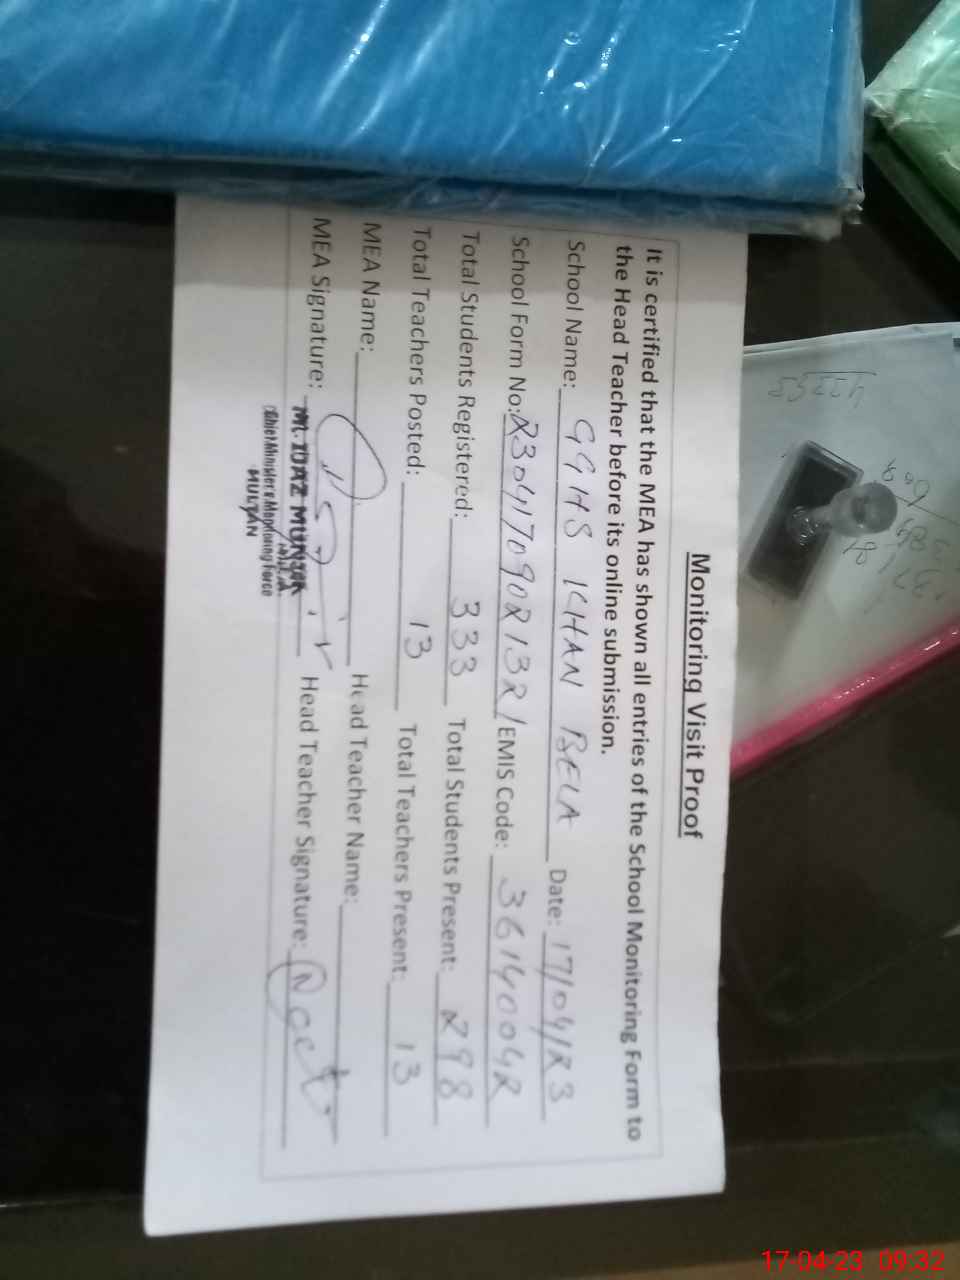 Monitoring Visit Proof
It is certified that the MEA has shown all entries of the School Monitoring Form to
the Head Teacher before its online submission.
School Name: GGHS KHAN BELA Date: 17/04/23
School Form No: 23041709021321 EMIS Code: 36140042
Total Students Registered: 333 Total Students Present: 298
Total Teachers Posted: 13 Total Teachers Present: 13
MEA Name: Head Teacher Name:
MEA Signature: Head Teacher Signature:
Chief Minister's Monitoring Force
MULTAN
17-04-23 09:32